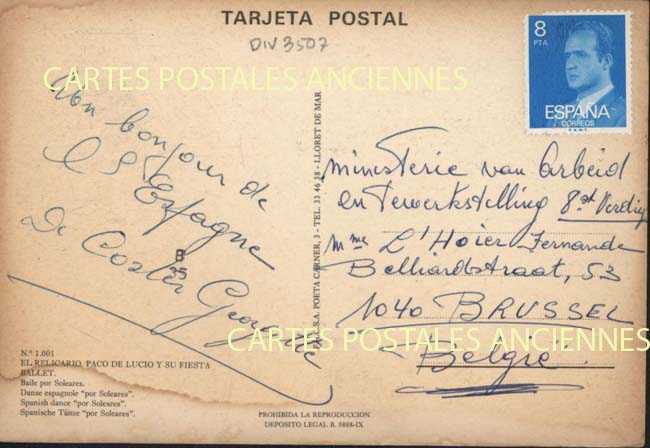 TARJETA POSTAL
DIV 3507
8
PTA
ESPAÑA
CORREOS
F.N.M.T.
CARTES POSTALES ANCIENNES
Un bonjour de
l'Espagne
De Coster Georgette
B
35
S.A. POETA CARNER, 3 - TEL. 33 46 38 - LLORET DE MAR
Ministerie van Arbeid
en Tewerkstelling 8st Verdiep
Mme L'Hoier Fernande
Belliardstraat, 53
1040 BRUSSEL
België
CARTES POSTALES ANCIENNES
N.º 1.001
EL RELICARIO. PACO DE LUCIO Y SU FIESTA
BALLET.
Baile por Soleares.
Danse espagnole "por Soleares".
Spanish dance "por Soleares".
Spanische Tänze "por Soleares".
PROHIBIDA LA REPRODUCCION
DEPOSITO LEGAL B. 5898-IX